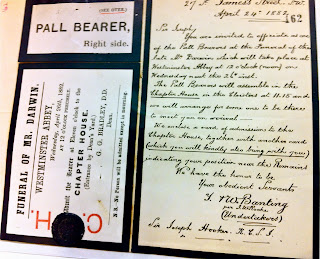 (SEE OVER.)
PALL BEARER,
Right side.
FUNERAL OF MR. DARWIN.
WESTMINSTER ABBEY,
Wednesday, April 26th, 1882.
AT 12 O'CLOCK PRECISELY.
Admit the Bearer at Eleven o'clock to the
CHAPTER HOUSE.
(Entrance by Dean's Yard.)
G. G. BRADLEY, D.D.
Dean.
N.B.—No Person will be admitted except in mourning.
C. H.
27 St James's Street, SW.
April 24th 1882.
162
Sir Joseph
You are invited to officiate as one
of the Pall Bearers at the Funeral of the
late Mr. Darwin which will take place at
Westminster Abbey at 12 o'clock (noon) on
Wednesday next the 26th inst.
The Pall Bearers will assemble in the
Chapter House in the Cloister at 11.15 and
we will arrange for some one to be there
to meet you on arrival.
We enclose card of admission to the
Chapter House, together with another card
(which you will kindly also bring with you)
indicating your position near the Remains
We have the honor to be
Your obedient Servants
T. & W. Banting
(Undertakers)
Sir Joseph Hooker. K.C.S.I.